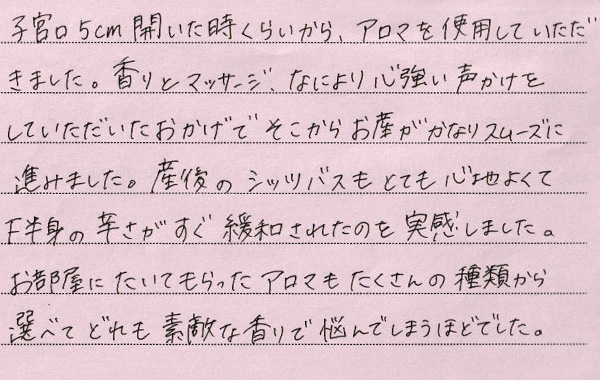 子宮口5cm開いた時くらいから、アロマを使用していただ
きました。香りとマッサージ、なにより心強い声かけを
していただいたおかげでそこからお産がかなりスムーズに
進みました。産後のシッツバスもとても心地よくて
下半身の辛さがすぐ緩和されたのを実感しました。
お部屋にたいてもらったアロマもたくさんの種類から
選べてどれも素敵な香りで悩んでしまうほどでした。